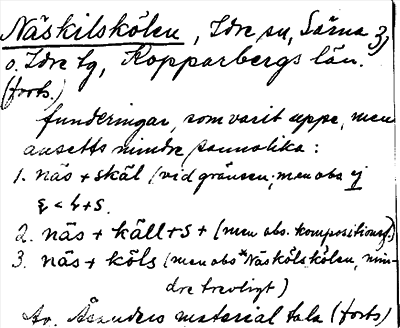 Näskilskölen, Idre sn, Särna 3,
o. Idre tg, Kopparbergs län.
(forts.)
funderingar, som varit uppe, men
ansetts mindre sannolika:
1. näs + skäl (vid gränsen; men obs ej
ɛ < l + s.
2. näs + käll + s + (men obs. kompositionsf.)
3. näs + köls (men obs *Näskölskölen, min-
dre troligt)
Av. Åsanders material tala (forts)